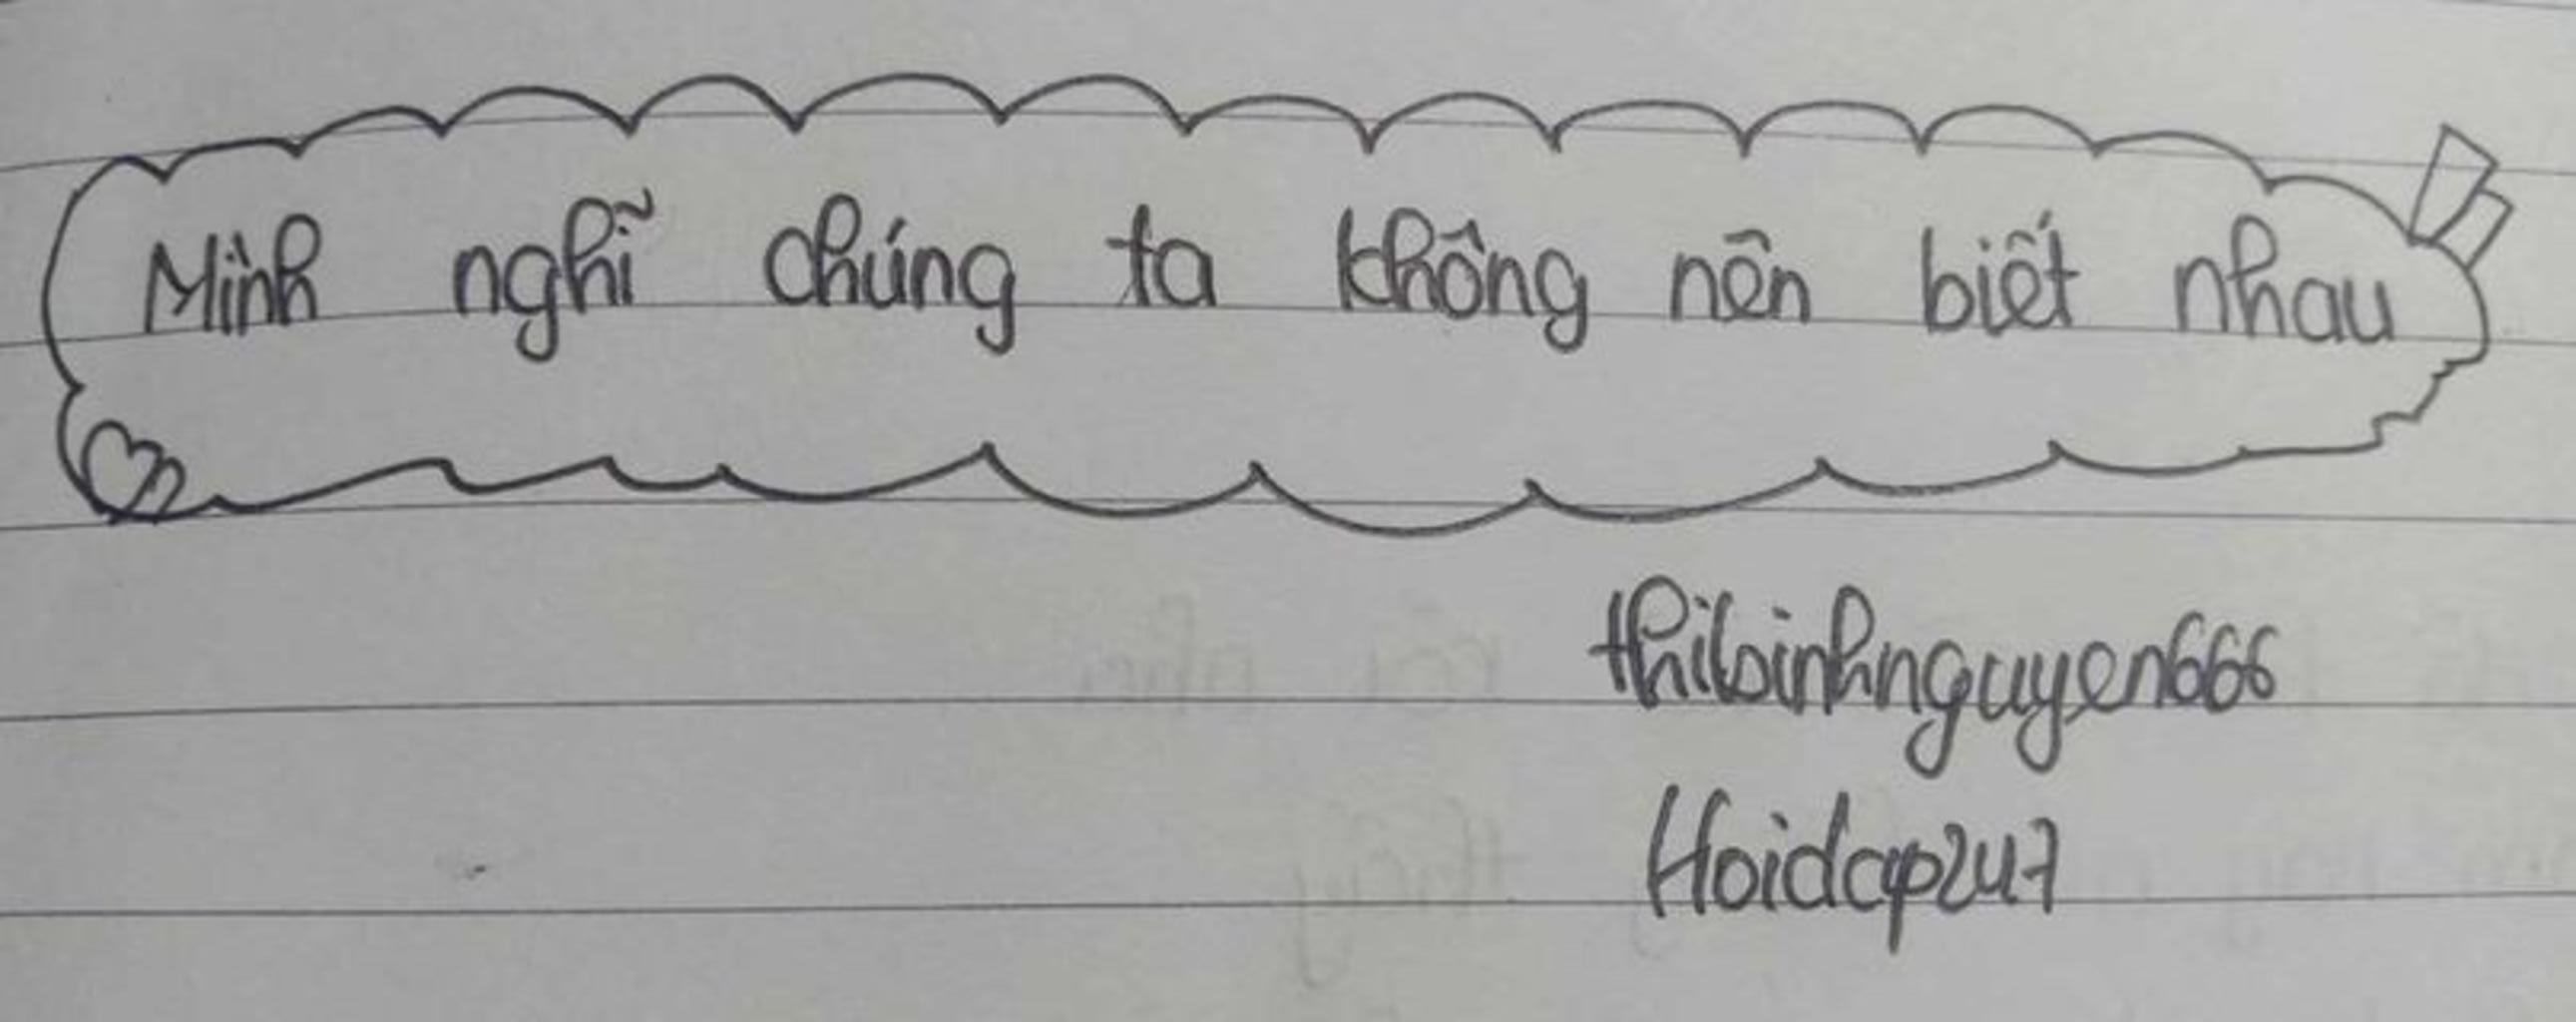 Mình nghĩ chúng ta không nên biết nhau
thibinhnguyen666
Hoidap247